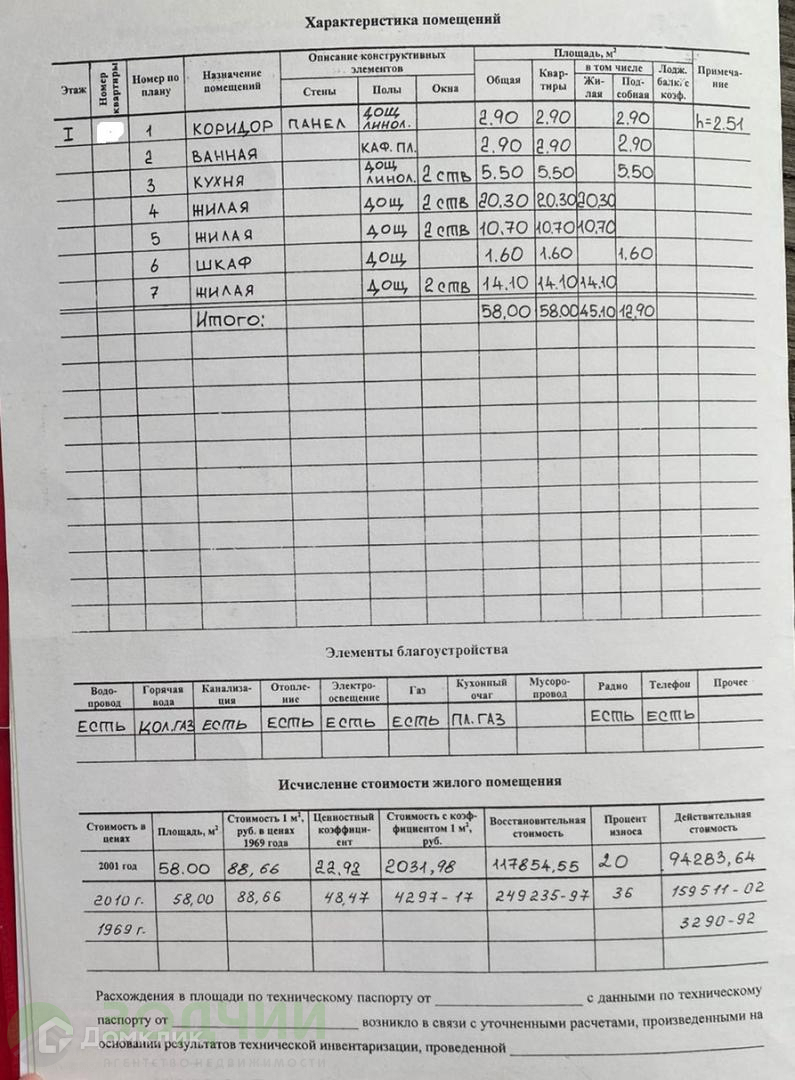 Характеристика помещений
Этаж | Номер квартиры | Номер по плану | Назначение помещений | Описание конструктивных элементов | Площадь, м²| Примеча-ние
Стены | Полы | Окна | Общая | Квар-тиры | в том числе | Лодж. балк. с коэф.
Жи-лая | Под-собная
I | 1 | КОРИДОР | ПАНЕЛ | ДОЩ ЛИНОЛ. | 2.90 | 2.90 | 2.90 | h=2.51
2 | ВАННАЯ | КАФ. ПЛ. | 2.90 | 2.90 | 2.90
3 | КУХНЯ | ДОЩ ЛИНОЛ. | 2 ств | 5.50 | 5.50 | 5.50
4 | ЖИЛАЯ | ДОЩ | 2 ств | 20.30 | 20.30 | 20.30
5 | ЖИЛАЯ | ДОЩ | 2 ств | 10.70 | 10.70 | 10.70
6 | ШКАФ | ДОЩ | 1.60 | 1.60 | 1.60
7 | ЖИЛАЯ | ДОЩ | 2 ств | 14.10 | 14.10 | 14.10
Итого: | 58,00 | 58.00 | 45.10 | 12.90
Элементы благоустройства
Водо-провод | Горячая вода | Канализа-ция | Отопле-ние | Электро-освещение | Газ | Кухонный очаг | Мусоро-провод | Радио | Телефон | Прочее
ЕСТЬ | КОЛ.ГАЗ | ЕСТЬ | ЕСТЬ | ЕСТЬ | ЕСТЬ | ПЛ. ГАЗ | ЕСТЬ | ЕСТЬ
Исчисление стоимости жилого помещения
Стоимость в ценах | Площадь, м² | Стоимость 1 м², руб. в ценах 1969 года | Ценностный коэффици-ент | Стоимость с коэф-фициентом 1 м², руб. | Восстановительная стоимость | Процент износа | Действительная стоимость
2001 год | 58.00 | 88,66 | 22,92 | 2031,98 | 117854,55 | 20 | 94283,64
2010 г. | 58,00 | 88,66 | 48,47 | 4297-17 | 249235-97 | 36 | 159511-02
1969 г. | 3290-92
Расхождения в площади по техническому паспорту от ____ с данными по техническому
паспорту от ____ возникло в связи с уточненными расчетами, произведенными на
основании результатов технической инвентаризации, проведенной ____
ЗОДЧИЙ
Домклик
АГЕНТСТВО НЕДВИЖИМОСТИ